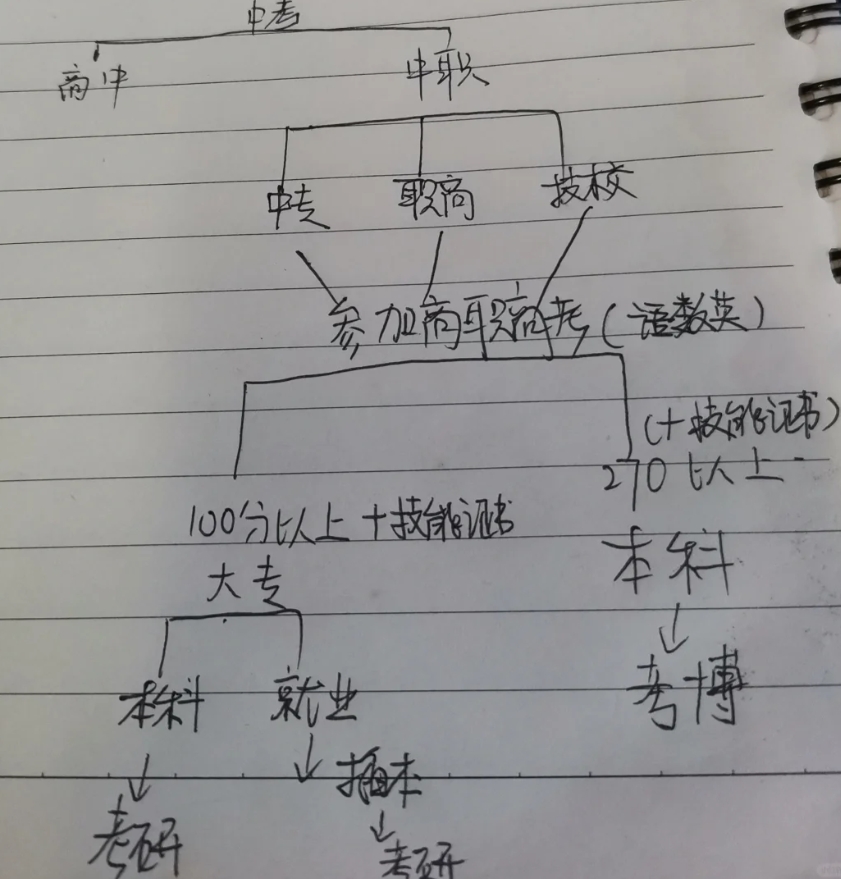 中考
高中 中职
中专 职高 技校
参加高职高考(语数英)
(+技能证书)
270以上
100分以上+技能证书
本科
大专
考博
本科 就业
插本
考研
考研